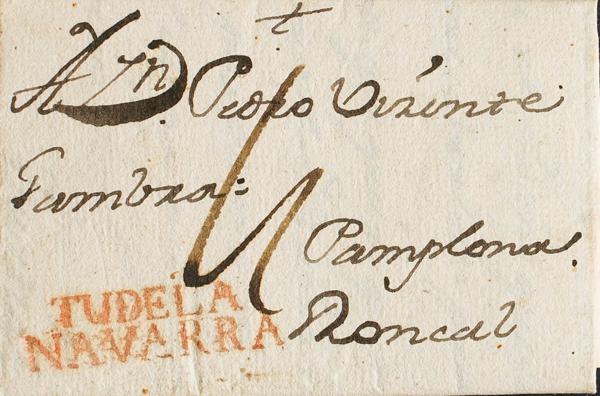 A Dn. Pedro Vizente
Gambra=
Pamplona.
Roncal
TUDELA
NAVARRA